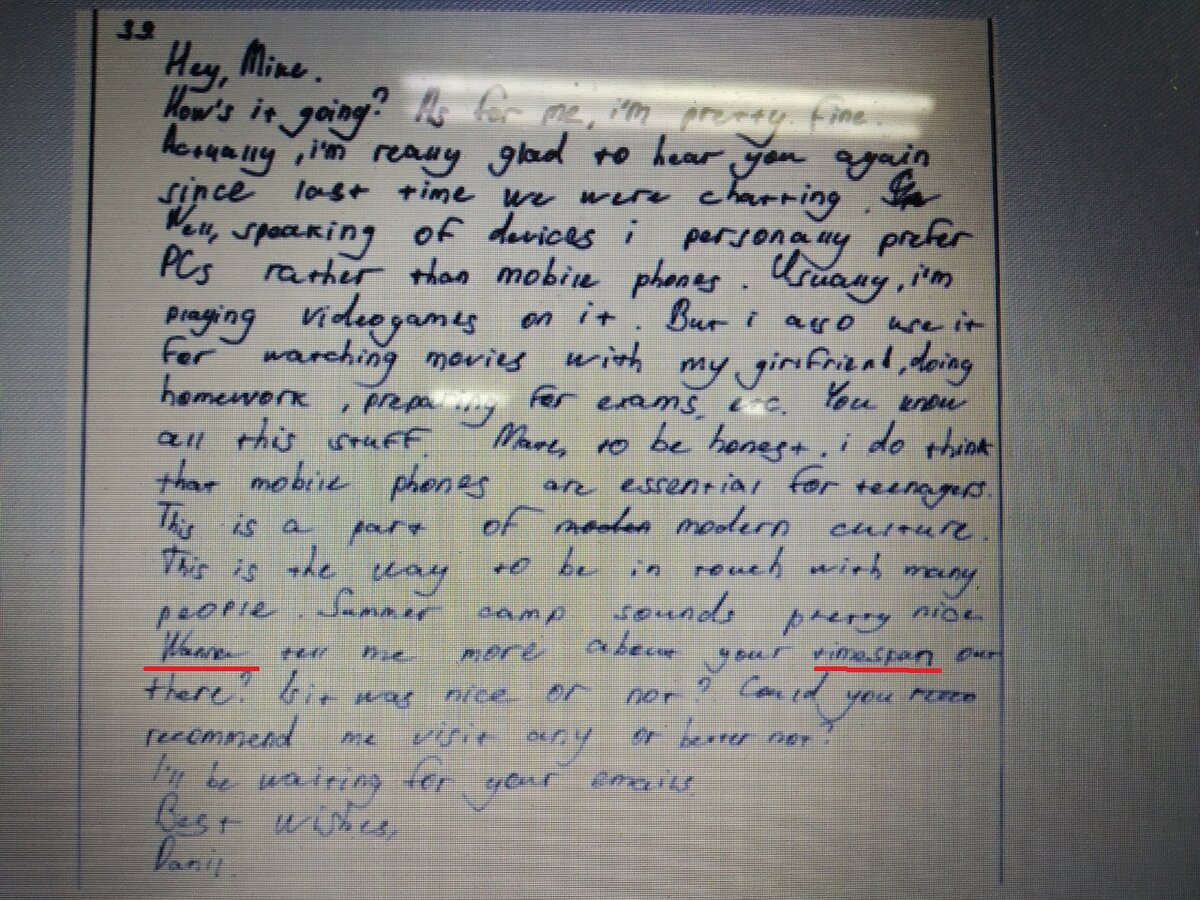 39
Hey, Mike.
How's it going? As for me, i'm pretty fine.
Actually, i'm really glad to hear you again
since last time we were chatting.
Well, speaking of devices i personally prefer
PCs rather than mobile phones. Usually, i'm
playing videogames on it. But i also use it
for watching movies with my girlfriend, doing
homework, preparing for exams, etc. You know
all this stuff. to be honest, i do think
that mobile phones are essential for teenagers.
This is a part of modern culture.
This is the way to be in touch with many
people. Summer camp sounds pretty nice
Wanna tell me more about your timespan out
there? was nice or not? Could you
recommend me visit any or better not?
I'll be waiting for your emails
Best wishes,
Danil.